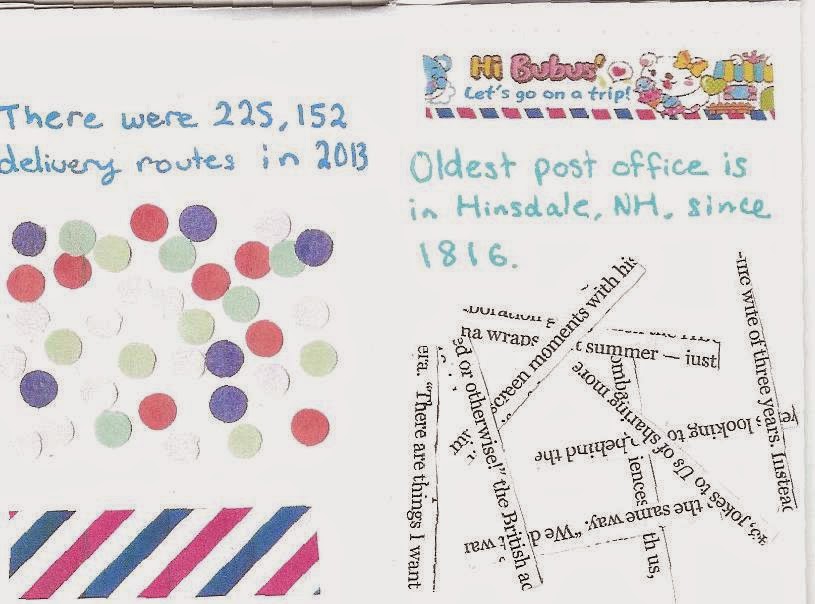 There were 225,152
delivery routes in 2013
Hi Bubus'
Let's go on a trip!
Oldest post office is
in Hinsdale, NH, since
1816.
screen moments with his
na wraps
t summer — just
era. "There are things I want
ed or otherwise!" the British ac
wife of three years. Instead
looking to
behind the
Jokes to Us of sharing more
iences
th us,
the same way. "We d